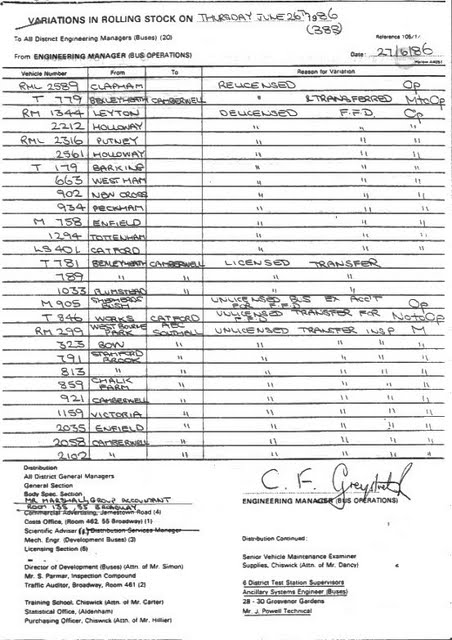 VARIATIONS IN ROLLING STOCK ON THURSDAY JUNE 26TH 1986
(388)
To All District Engineering Managers (Buses) (20) Reference 105/1/
From ENGINEERING MANAGER (BUS OPERATIONS) Date: 27/6/86
Vehicle Number From To Reason for Variation
RML 2589 CLAPHAM RELICENSED Op
T 779 BEXLEYHEATH CAMBERWELL " & TRANSFERRED M to Op
RM 1344 LEYTON DELICENSED F.F.D. Op
2212 HOLLOWAY " " "
RML 2316 PUTNEY " " "
2561 HOLLOWAY " " "
T 179 BARKING " " "
663 WEST HAM " " "
902 NEW CROSS " " "
934 PECKHAM " " "
M 758 ENFIELD " " "
1294 TOTTENHAM " " "
LS 401 CATFORD " " "
T 781 BEXLEYHEATH CAMBERWELL LICENSED TRANSFER
789 " " " "
1033 PLUMSTEAD " " "
M 905 SHEPHERDS BUSH UNLICENSED BUS EX ACC'T FOR F.F.D. Op
T 846 WORKS CATFORD UNLICENSED TRANSFER FOR F.F.D. N to Op
RM 299 WESTBOURNE PARK AEC SOUTHALL UNLICENSED TRANSFER INSP M
323 BOW " " " " "
791 STAMFORD BROOK " " " " "
813 " " " " " "
859 CHALK FARM " " " " "
921 CAMBERWELL " " " " "
1159 VICTORIA " " " " "
2035 ENFIELD " " " " "
2058 CAMBERWELL " " " " "
2102 " " " " " "
Distribution
All District General Managers
General Section
Body Spec. Section
MR MARSHALL GROUP ACCOUNTANT
ROOM 135, 55 BROADWAY
Commercial Advertising, Jamestown Road (4)
Costs Office, (Room 462, 55 Broadway) (1)
Scientific Adviser Distribution Services Manager
Mech. Engr. (Development Buses) (3)
Licensing Section (8)
Director of Development (Buses) (Attn. of Mr. Simon)
Mr. S. Parmar, Inspection Compound
Traffic Auditor, Broadway, Room 461 (2)
Training School, Chiswick (Attn. of Mr. Carter)
Statistical Office, (Aldenham)
Purchasing Officer, Chiswick (Attn. of Mr. Hillier)
C. F.
ENGINEERING MANAGER (BUS OPERATIONS)
Distribution Continued:
Senior Vehicle Maintenance Examiner
Supplies, Chiswick (Attn. of Mr. Dancy)
6 District Test Station Supervisors
Ancillary Systems Engineer (Buses)
28 - 30 Grosvenor Gardens
Mr. J. Powell Technical